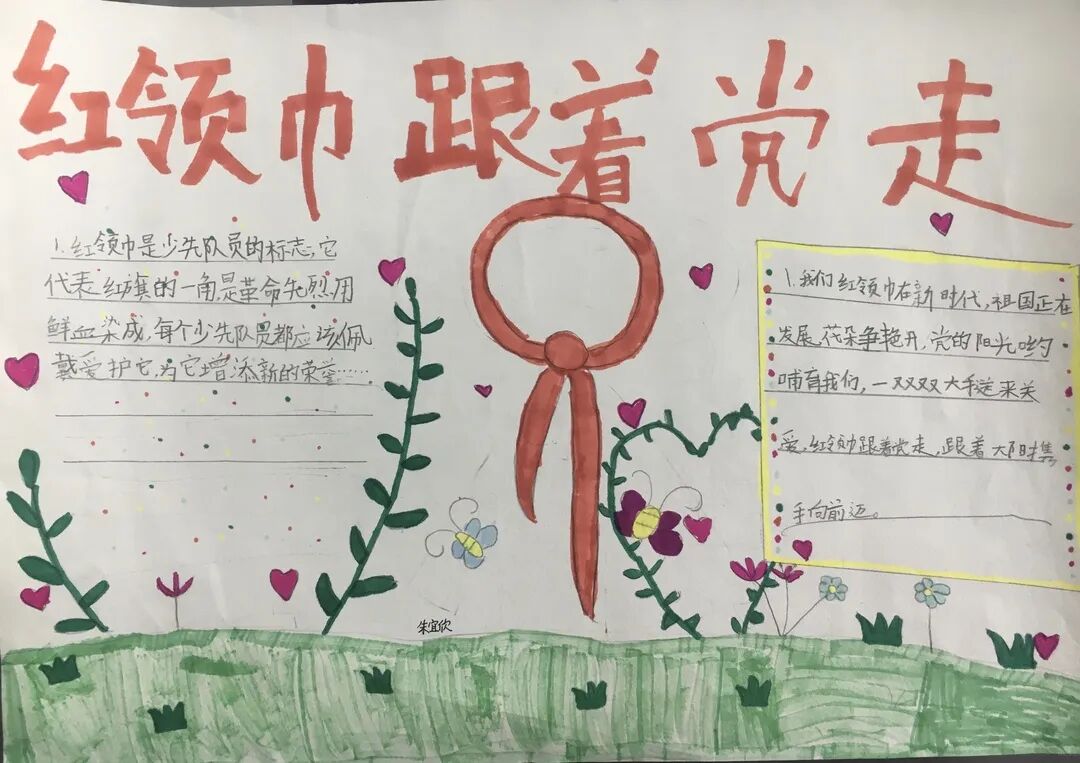 红领巾跟着党走
1.红领巾是少先队员的标志,它
代表红旗的一角,是革命先烈用
鲜血染成,每个少先队员都应该佩
戴爱护它,为它增添新的荣誉……
1.我们红领巾在新时代,祖国正在
发展,花朵争艳开,党的阳光哟
哺育我们,一双双大手送来关
爱,红领巾跟着党走,跟着太阳携
手向前迈。
朱宜欣